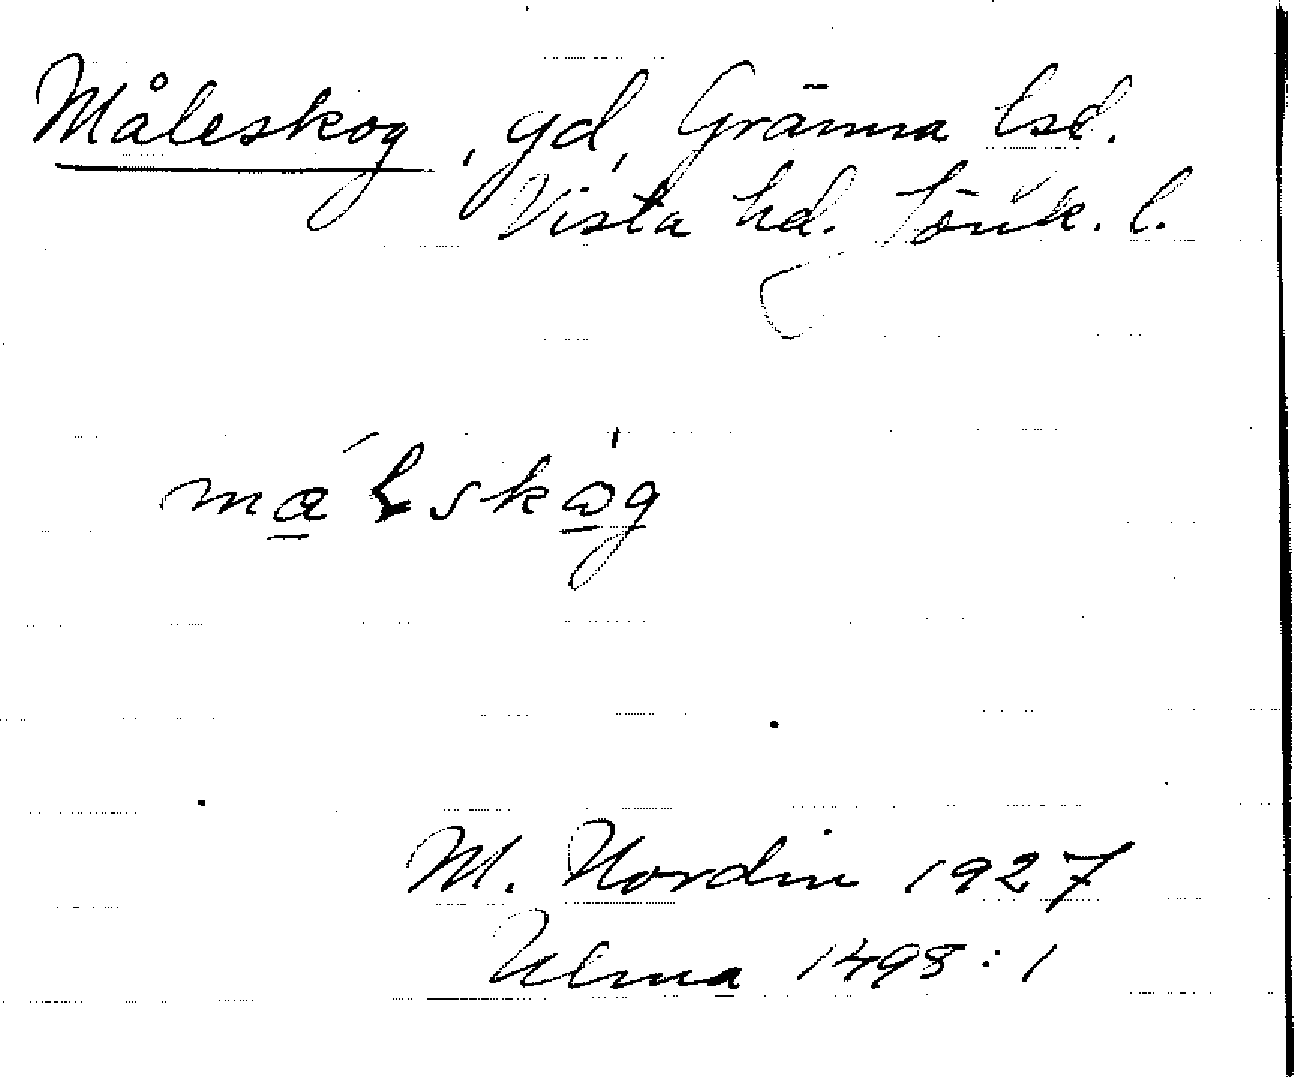 Måleskog, gd, Gränna lsd.
Vista hd. Jönk. l.
M. Nordin 1927
Ulma 1498:1